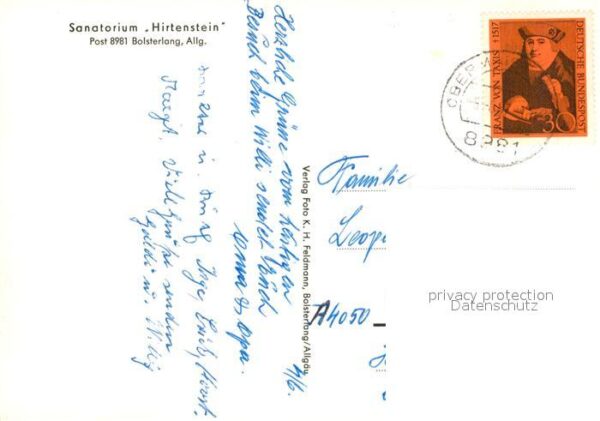 Sanatorium „Hirtenstein"
Post 8981 Bolsterlang, Allg.
Herzliche Grüße vom heutigen
Besuch beim Willi sendet Euch
Oma & Opa.
4/6.
Inge,
Horst,
Viele
senden
u. Willy
Verlag Foto K. H. Feldmann, Bolsterlang/Allgäu
FRANZ VON TAXIS †1517
DEUTSCHE BUNDESPOST
30
OBER
8981
Familie
Leopo
A4050
privacy protection
Datenschutz